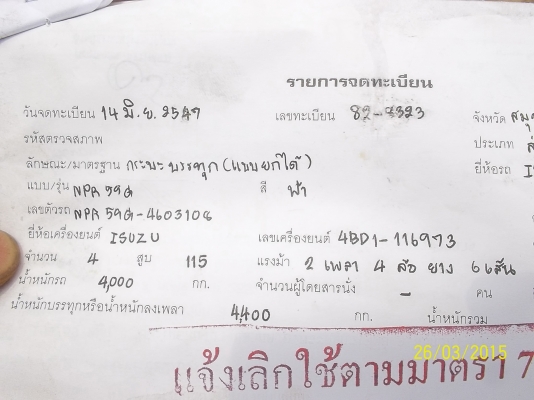 รายการจดทะเบียน
วันจดทะเบียน 14 มิ.ย. 2547 เลขทะเบียน 82-8323 จังหวัด
รหัสตรวจสภาพ ประเภท
ลักษณะ/มาตรฐาน กระบะบรรทุก (แบบยกได้) ยี่ห้อรถ
แบบ/รุ่น NPR 59G สี ฟ้า
เลขตัวรถ NPR 59G-4603108
ยี่ห้อเครื่องยนต์ ISUZU เลขเครื่องยนต์ 4BD1-116973
จำนวน 4 สูบ 115 แรงม้า 2 เพลา 4 ล้อ ยาง 6 เส้น
น้ำหนักรถ 4,000 กก. จำนวนผู้โดยสารนั่ง - คน
น้ำหนักบรรทุกหรือน้ำหนักลงเพลา 4,400 กก. น้ำหนักรวม
แจ้งเลิกใช้ตามมาตรา 7
26/03/2015